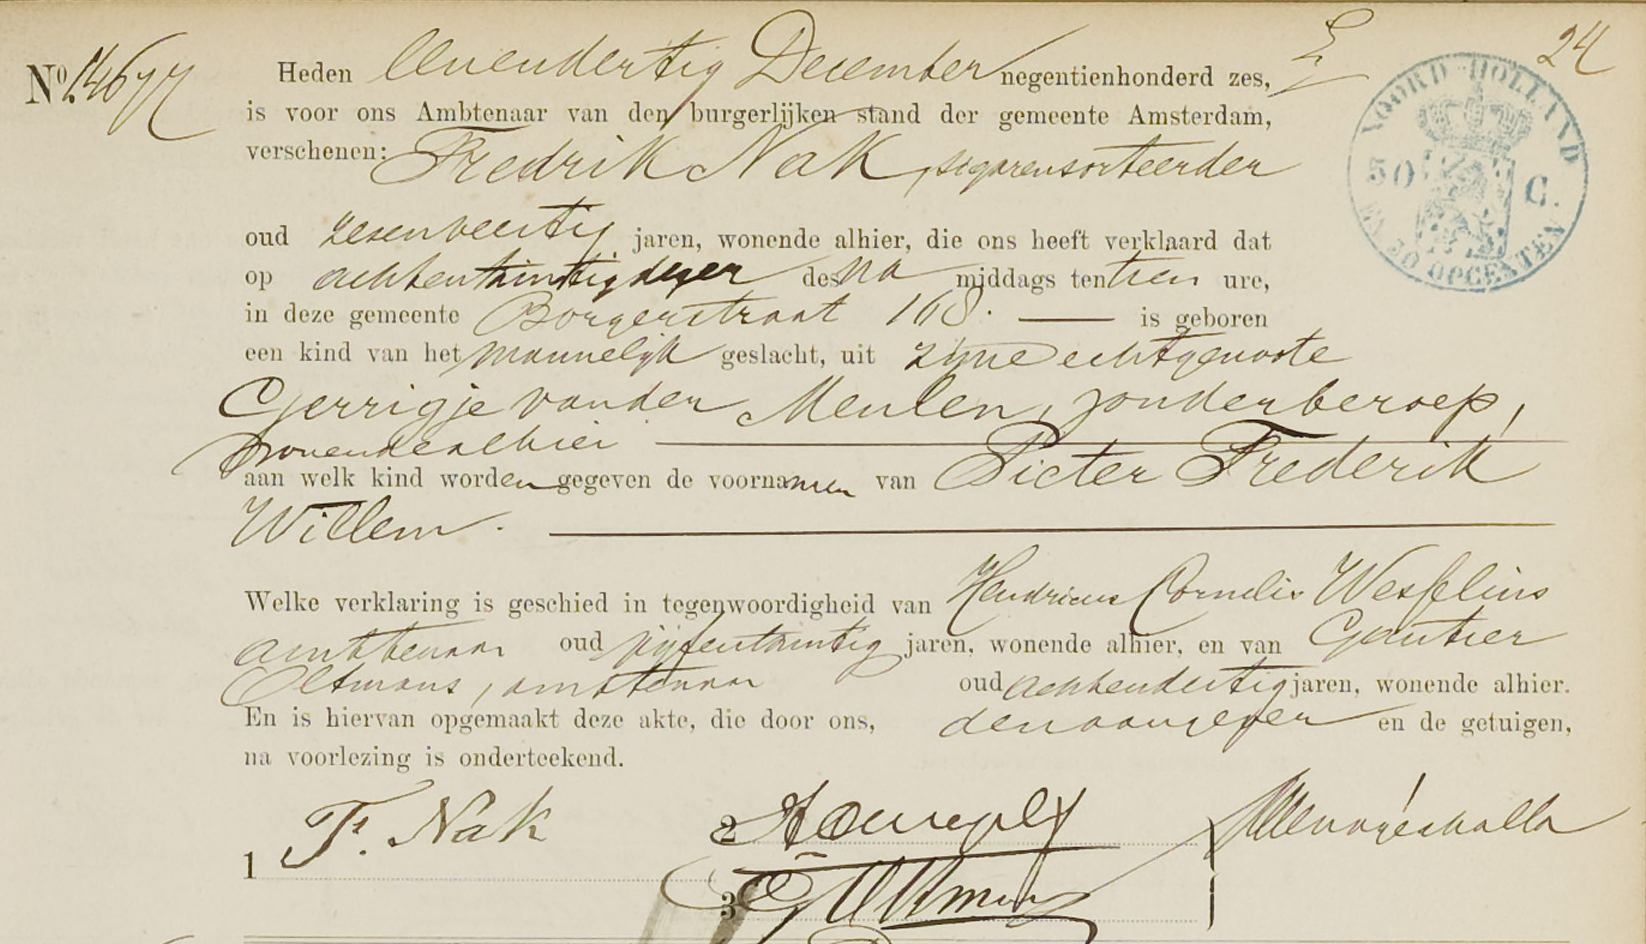 24
No 14677
Heden Eenendertig December negentienhonderd zes,
is voor ons Ambtenaar van den burgerlijken stand der gemeente Amsterdam,
verschenen: Fredrik Nak, sigarensorteerder
oud zesenveertig jaren, wonende alhier, die ons heeft verklaard dat
op achtentwintig dezer des na middags ten tien ure,
in deze gemeente Borgerstraat 168. is geboren
een kind van het mannelijk geslacht, uit zijne echtgenoote
Gerrigje van der Meulen, zonder beroep,
wonende alhier
aan welk kind worden gegeven de voornamen van Pieter Frederik
Willem.
Welke verklaring is geschied in tegenwoordigheid van Hendricus Cornelis Wesselius
ambtenaar oud vijfentwintig jaren, wonende alhier, en van Gautier
Oltmans, ambtenaar oud achtendertig jaren, wonende alhier.
En is hiervan opgemaakt deze akte, die door ons, den aangever en de getuigen,
na voorlezing is onderteekend.
1 F. Nak
2
3 Oltmans
NOORD-HOLLAND
50 C.
EN 30 OPCENTEN